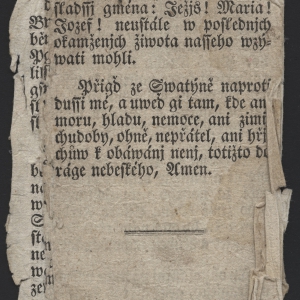 sladssj gména: Ježjs! Maria!
Jozef! neustále w poslednjch
okamženjch života nasseho wzý-
wati mohli.
Přigď ze Swatýně naproti
dussi mé, a uweď gi tam, kde ani
moru, hladu, nemoce, ani zimi
chudoby, ohně, nepřátel, ani hřj-
chůw k obáwánj nenj, totižto do
ráge nebeského, Amen.